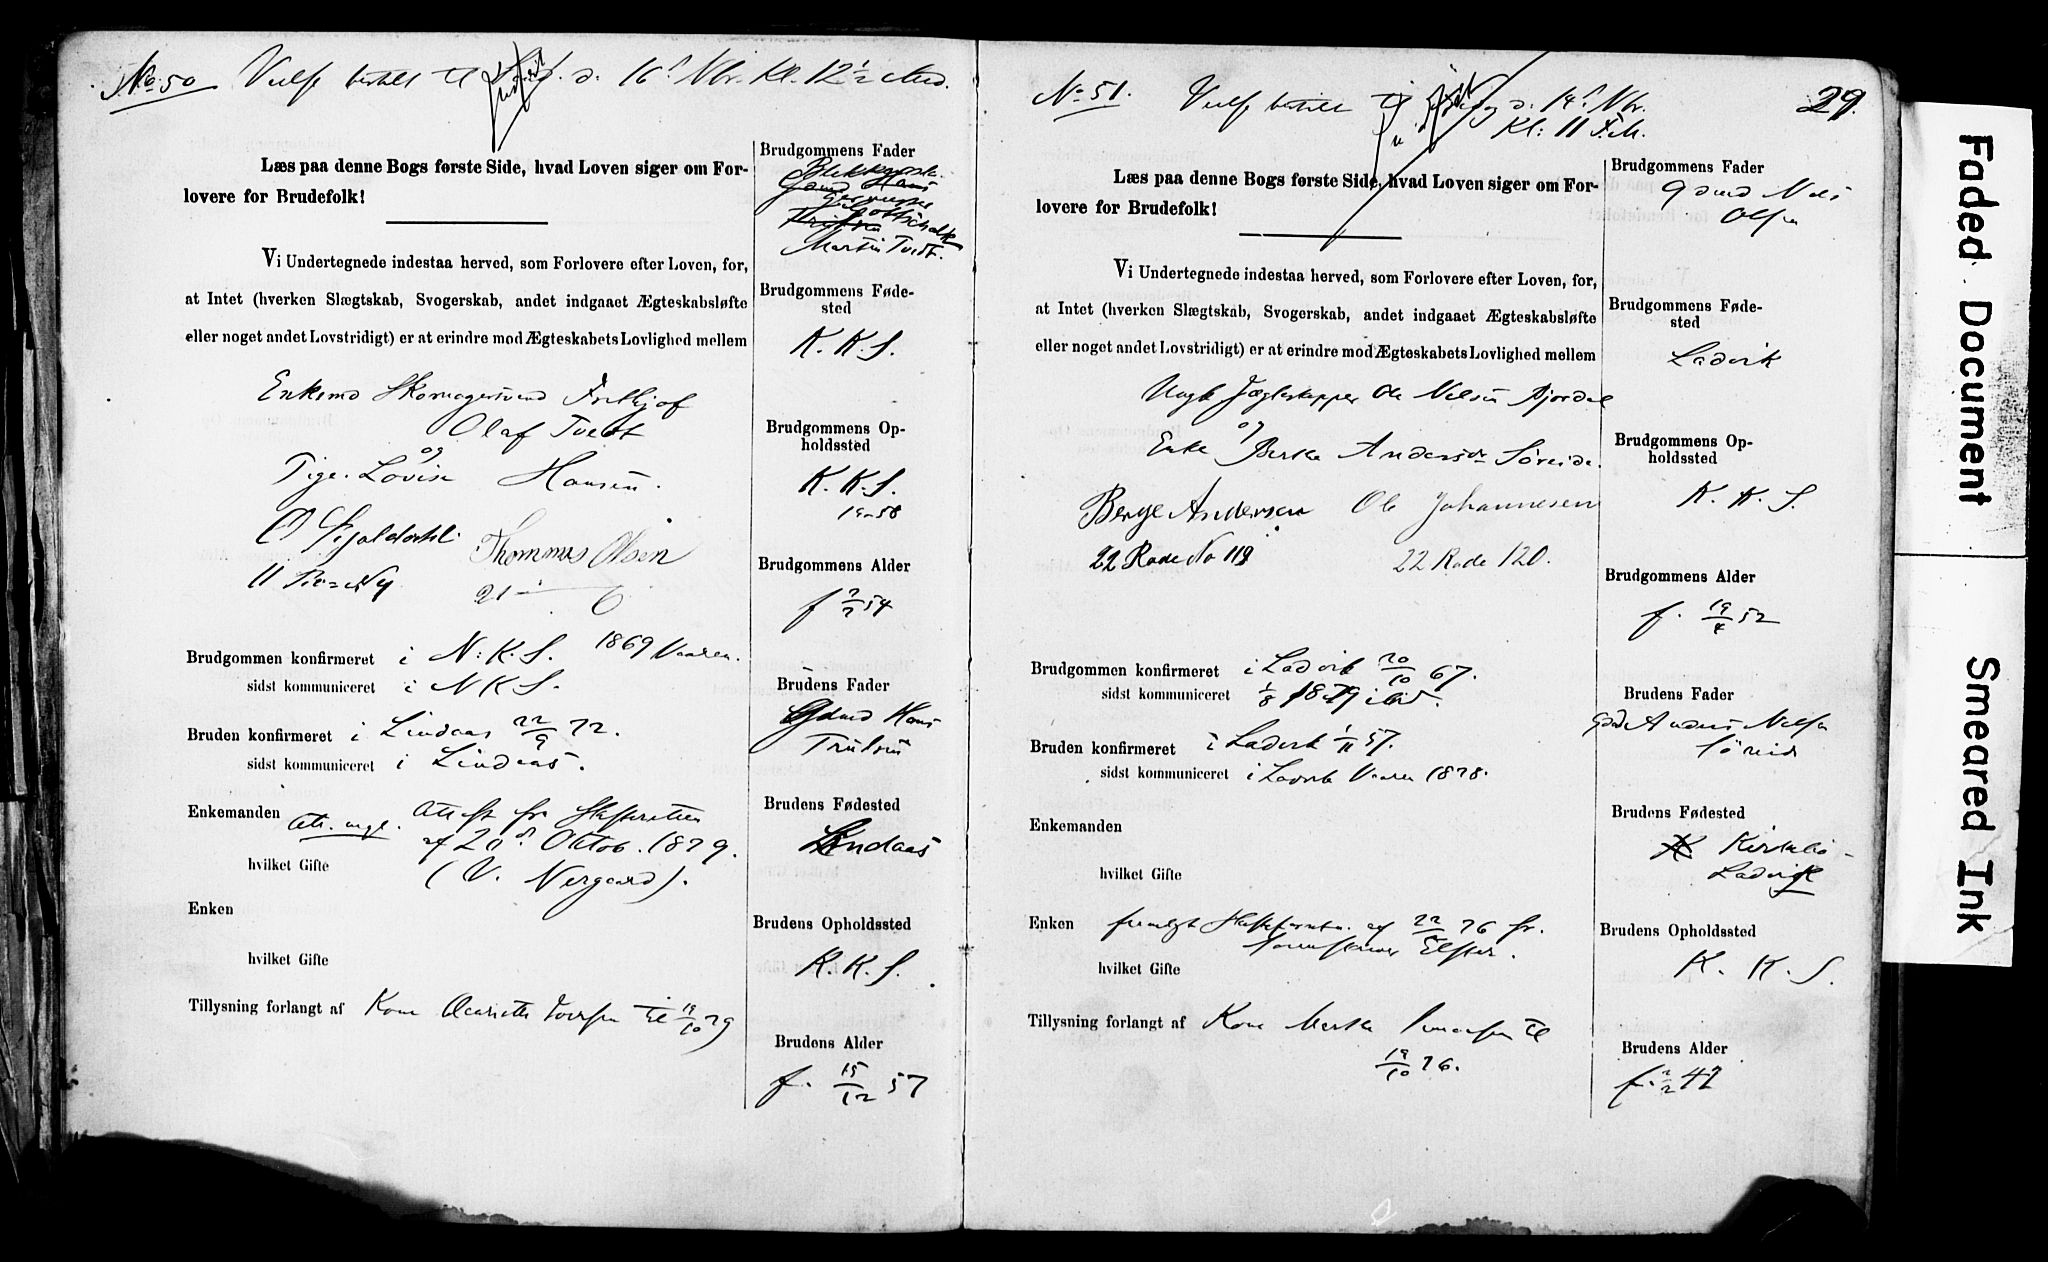 No 50 Vielse bestilt til d. 16d Nbr. Kl. 12 1/2
Læs paa denne Bogs første Side, hvad Loven siger om For-
lovere for Brudefolk!
Vi Undertegnede indestaa herved, som Forlovere efter Loven, for,
at Intet (hverken Slægtskab, Svogerskab, andet indgaaet Ægteskabsløfte
eller noget andet Lovstridigt) er at erindre mod Ægteskabets Lovlighed mellem
Enkemd Skomagersvend Frithjof
Olaf Tvedt
og
Pige Lovise Hansen.
Thommas Olsen
11 No 4
21 6
Brudgommen konfirmeret i N.K.S. 1869 Vaaren.
sidst kommuniceret i N K S.
Bruden konfirmeret i Lindaas 22/9 72.
sidst kommuniceret i Lindaas.
Enkemanden Attest fr Skifteretten
af 20d Oktob. 1879.
hvilket Gifte (V. Nergaard).
Enken
hvilket Gifte
Tillysning forlangt af Kone til 19/10 79
Brudgommens Fader
Hans
Gottschalk
Martin Tvedt.
Brudgommens Føde-
sted
K. K. S.
Brudgommens Op-
holdssted
K. K. S.
Brudgommens Alder
f 2/7 54
Brudens Fader
Gdmd Hans
Brudens Fødested
Lindaas
Brudens Opholdssted
K. K. S.
Brudens Alder
f. 15/12 57
No 51. Vielse bestilt til d. 14d Nbr.
Kl: 11 F.M.
29.
Læs paa denne Bogs første Side, hvad Loven siger om For-
lovere for Brudefolk!
Vi Undertegnede indestaa herved, som Forlovere efter Loven, for,
at Intet (hverken Slægtskab, Svogerskab, andet indgaaet Ægteskabsløfte
eller noget andet Lovstridigt) er at erindre mod Ægteskabets Lovlighed mellem
Ungk Jægteskipper Ole Nelsen
og
Enke Berte Andersdr Søreide.
Berge Andersen Ole Johannesen
22 Rode No 119 22 Rode 120.
Brudgommen konfirmeret i Ladvik 20/10 67.
sidst kommuniceret 1/8 1879 i
Bruden konfirmeret i Ladvik 1/11 57.
sidst kommuniceret i Ladvik Vaaren 1878.
Enkemanden
hvilket Gifte
Enken fremlagt af 22/ 76 fr.
Sorenskriver Elster.
hvilket Gifte
Tillysning forlangt af Kone til
19/10 76.
Brudgommens Fader
Gdmd Nels
Olsen
Brudgommens Føde-
sted
Ladvik
Brudgommens Op-
holdssted
K. K. S.
Brudgommens Alder
f. 19/4 52
Brudens Fader
Anders Nelsen
Søreide
Brudens Fødested
Kirkebø
Ladvik
Brudens Opholdssted
K. K. S.
Brudens Alder
f. 2/2 42
Faded Document
Smeared Ink